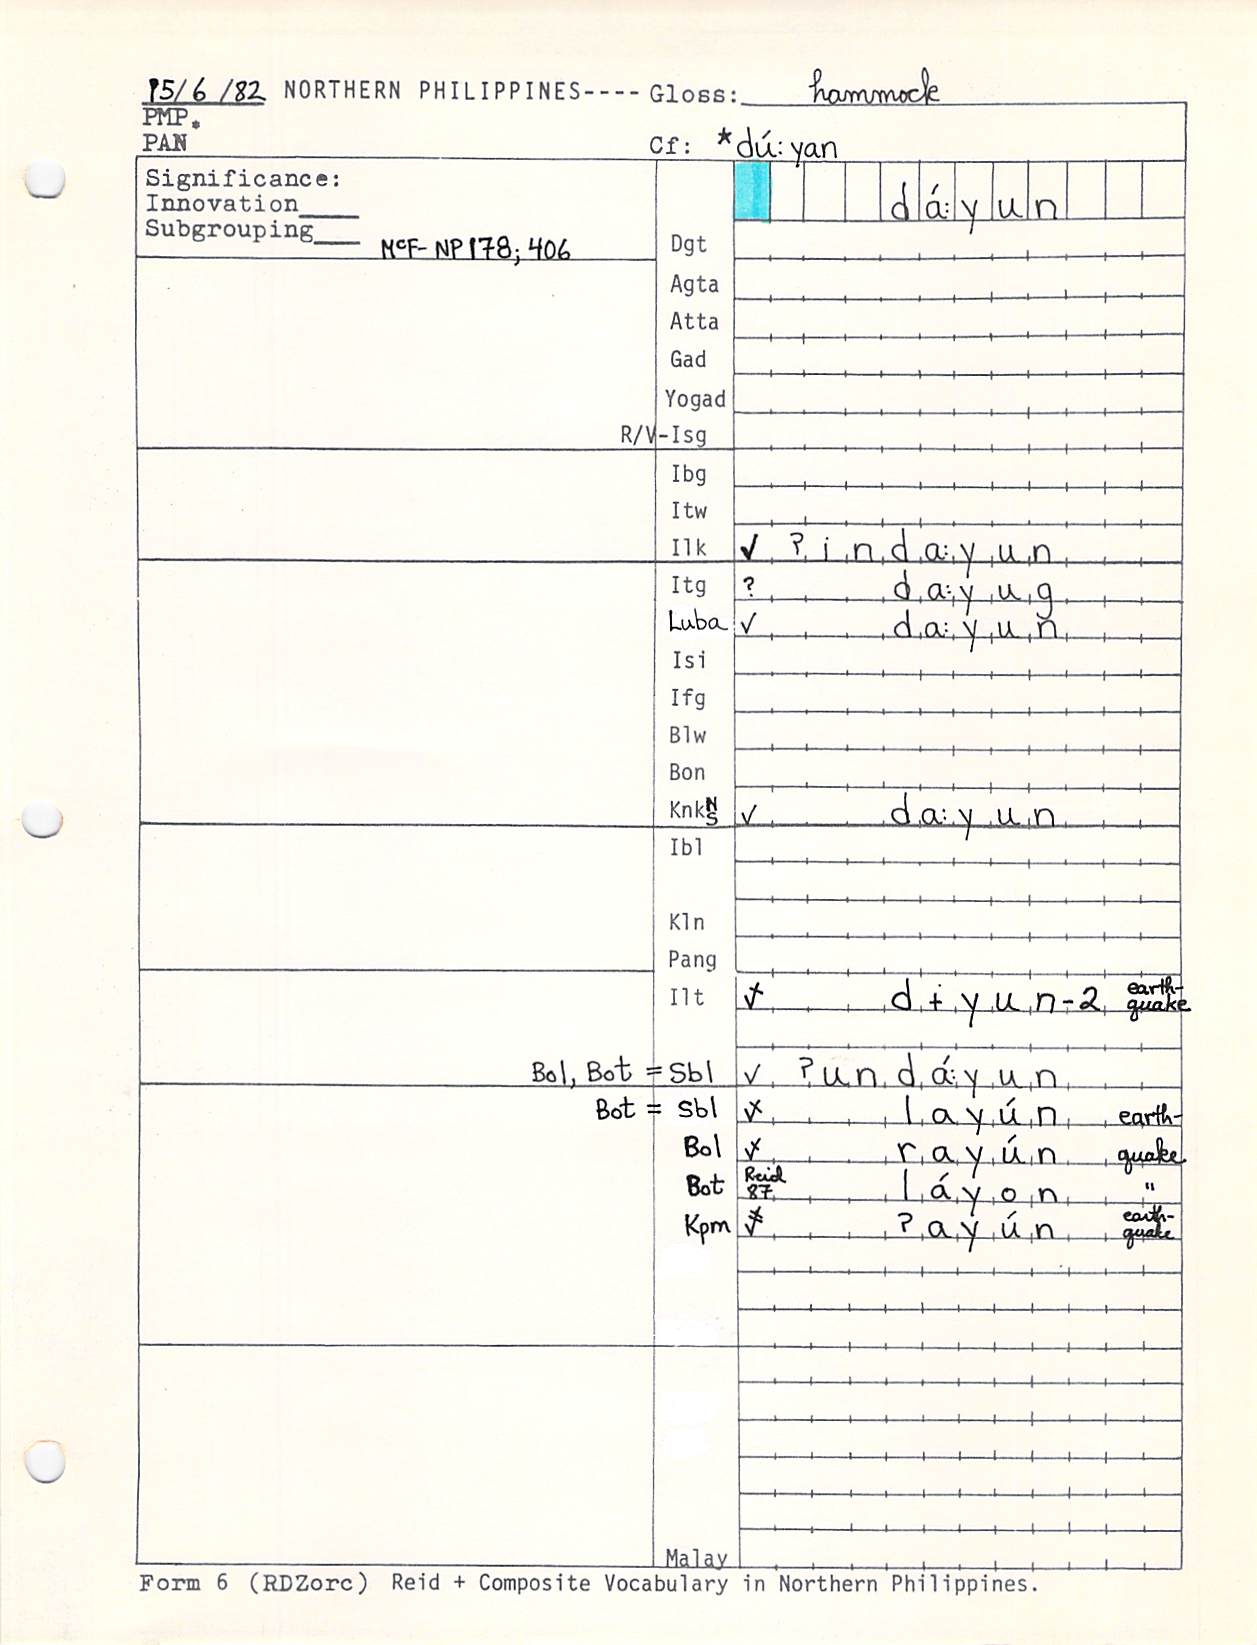 15/6/82 NORTHERN PHILIPPINES---- Gloss: hammock
PMP.
PAN Cf: *dú:yan
Significance: dá:yun
Innovation____
Subgrouping___ McF- NP178; 406
Dgt
Agta
Atta
Gad
Yogad
R/V-Isg
Ibg
Itw
Ilk ✓ ?inda:yun
Itg ? da:yug
Luba ✓ da:yun
Isi
Ifg
Blw
Bon
Knk N S ✓ da:yun
Ibl
Kln
Pang
Ilt dɨyun-2 earth-quake
Bol, Bot = Sbl ✓ ?undá:yun
Bot = Sbl layún earth-
Bol rayún quake
Bot Reid 87 láyon "
Kpm ?ayún earth-quake
Malay
Form 6 (RDZorc) Reid + Composite Vocabulary in Northern Philippines.